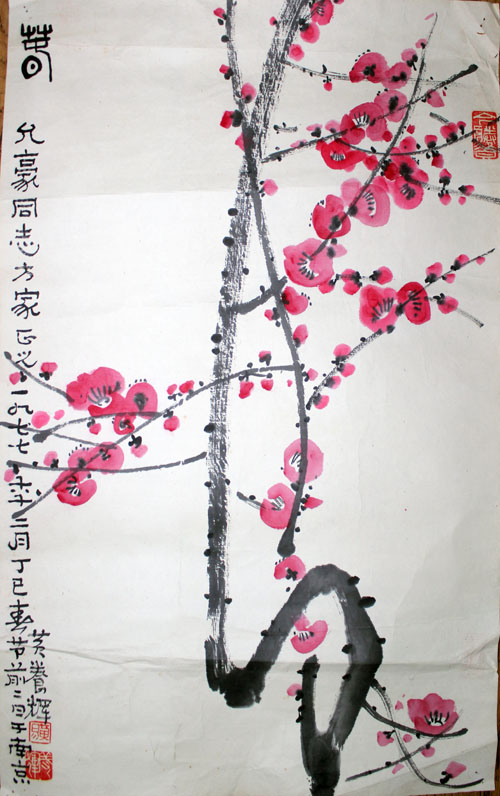 春
允豪同志方家正之一九七七年二月丁巳春节前二日于南京
黄養辉